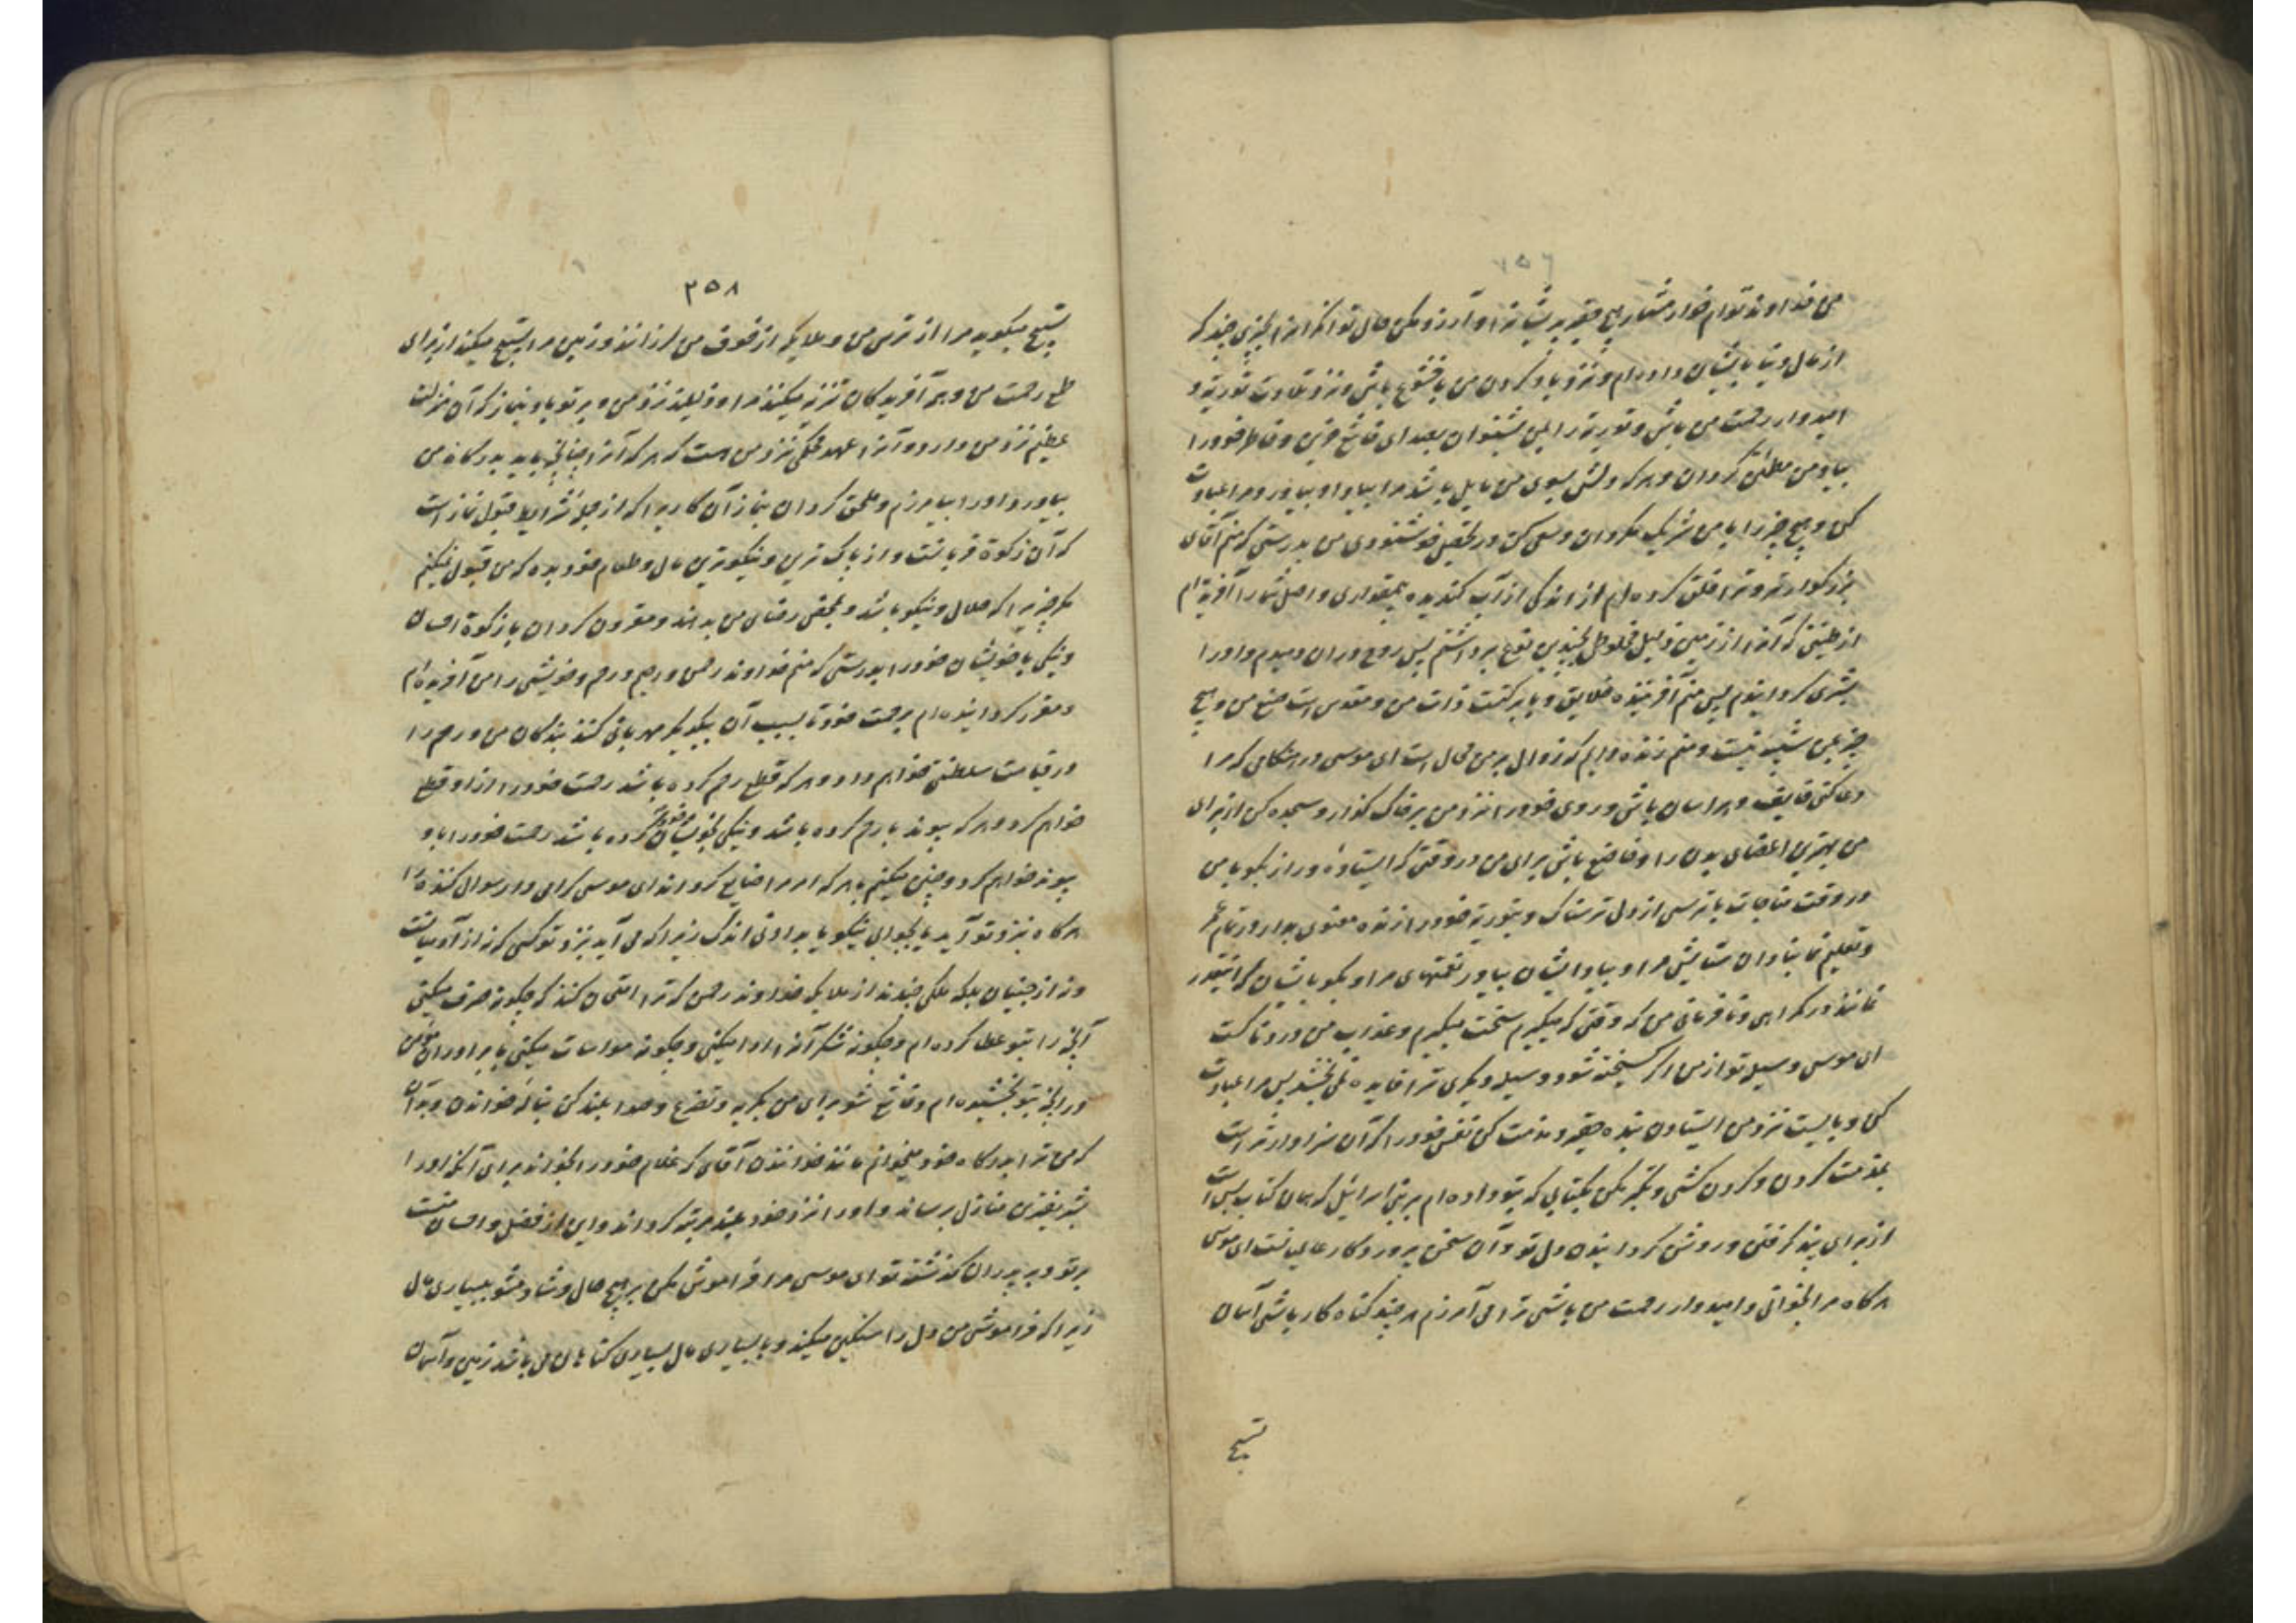 من خداوند توام خوار مشمار هیچ حقیر پریشانرا و آرزو مکن حال توانگرانرا بچیزی چند که
از مال دنیا بایشان داده‌ام و نزد یاد کردن من با خشوع باش و نزد تلاوت توریة
امیدوار رحمت من باش و توریة را بمن بشنوان بصدای خاشع حزین و خاطر خود را
بیاد من مطمئن گردان و هرکه دلش بسوی من مایل باشد مرا بیاد او بیاور و مرا عبادت
کن و هیچ چیز را با من شریک مگردان و سعی کن در تحصیل خوشنودی من بدرستی که منم آقای
بزرگوار تو و ترا خلق کرده‌ام از اندکی از آب گندیده بیمقداری و اصل شما را آفریده‌ام
از طینتی که آنرا از زمین ذلیل مخلوط بچندین نوع برداشتم پس روح در آن دمیدم و او را
بشری گردانیدم پس منم آفریننده خلایق و با برکتست ذات من و مقدس است صنع من و هیچ
چیز بمن شبیه نیست و منم زنده دایم که زوال بر من محال است ای موسی در هنگامی که مرا
دعا کنی خایف و هراسان باش و روی خود را نزد من بر خاک گذار و سجده کن از برای
من بهترین اعضای بدن را و خاضع باش برای من در وقتی که ایستادهٔ و راز بگو با من
در وقت مناجات با ترسی از دل ترسناک و بتوریة خود را زنده معنوی بدار در تمام عمر
و تعلیم نما بنادان ستایش مرا و بیاد ایشان بیاور نعمتهای مرا و بگو بایشان که اینقدر
نمانند در گمراهی و نافرمانی من که وقتی که میگیرم سخت میگیرم و عذاب من دردناکست
ای موسی وسیله تو از من اگر گسیخته شود وسیله دیگری ترا فایده نمی‌بخشد پس مرا عبادت
کن و بایست نزد من ایستادن بنده حقیر و مذمت کن نفس خود را که آن سزاوارتر است
بمذمت کردن و گردن کشی و تکبر مکن بکتابی که بتو داده‌ام بر بنی اسرائیل که همان کتاب بس است
از برای پند گرفتن و روشن گردانیدن دل تو و آن سخن پروردگار عالمیانست ای موسی
هرگاه مرا بخوانی و امیدوار رحمت من باشی ترا می‌آمرزم هرچند گناه کار باشی آسمان
تسبیح
۲۵۸
تسبیح میگوید مرا از ترس من و ملایکه از خوف من لرزانند و زمین مرا تسبیح میکند از برای
طمع رحمت من و همه آفریدگان تنزیه میکنند مرا و ذلیلند نزد من و بر تو باد بنماز که آن منزلت
عظیم نزد من دارد و آنرا عهد محکمی نزد من هست که هرکه آنرا چنانچه باید بدرگاه من
بیاورد او را بیامرزم و ملحق گردان بنماز آن کاری را که از جمله شرایط قبول نماز است
که آن زکوة قربانست و از پاک ترین و نیکوترین مال و طعام خود بده که من قبول نمیکنم
مگر چیزیرا که حلال و نیکو باشد و بمحض رضای من بدهند و مقرون گردان با زکوة احسان
و نیکی با خویشان خود را بدرستی که منم خداوند رحمن و رحیم و رحم و خویشی را من آفریده‌ام
و مقرر گردانیده‌ام برحمت خود تا بسبب آن بیکدیگر مهربانی کنند بندگان من و رحم را
در قیامت سلطنتی خواهم داد و هرکه قطع رحم کرده باشد رحمت خود را از او قطع
خواهم کرد و هرکه پیوند با رحم کرده باشد و نیکی بخویشان خود کرده باشد رحمت خود را با او
پیوند خواهم کرد و چنین میکنم با هرکه امر مرا ضایع گرداند ای موسی گرامی دار سوال کننده را
هرگاه نزد تو آید یا بجوابی نیکو یا بدادن اندک زیرا که می‌آید نزد تو کسی که نه از آدمیانست
و نه از جنیان بلکه ملکی چندند از ملایکه خداوند رحمن که ترا امتحان کنند که چگونه صرف میکنی
آنچه را بتو عطا کرده‌ام و چگونه شکر آنرا ادا میکنی و چگونه مواسات میکنی با برادران مؤمن
در آنچه بتو بخشیده‌ام و خاشع شو برای من بگریه و تضرع و صدا بلند کن بناله خواندن توریة و بدان
که من ترا بدرگاه خود میخوانم مانند خواندن آقای که غلام خود را بخواند برای آنکه او را
بشریفترین منازل برساند و او را نزد خود بلند مرتبه گرداند و این از فضل و احسان منست
بر تو و بر پدران گذشته تو ای موسی مرا فراموش مکن بر هیچ حال و شاد مشو ببسیاری مال
زیرا که فراموشی من دل را سنگین میکند و با بسیاری مال بسیاری گناهان می‌باشد زمین و آسمان